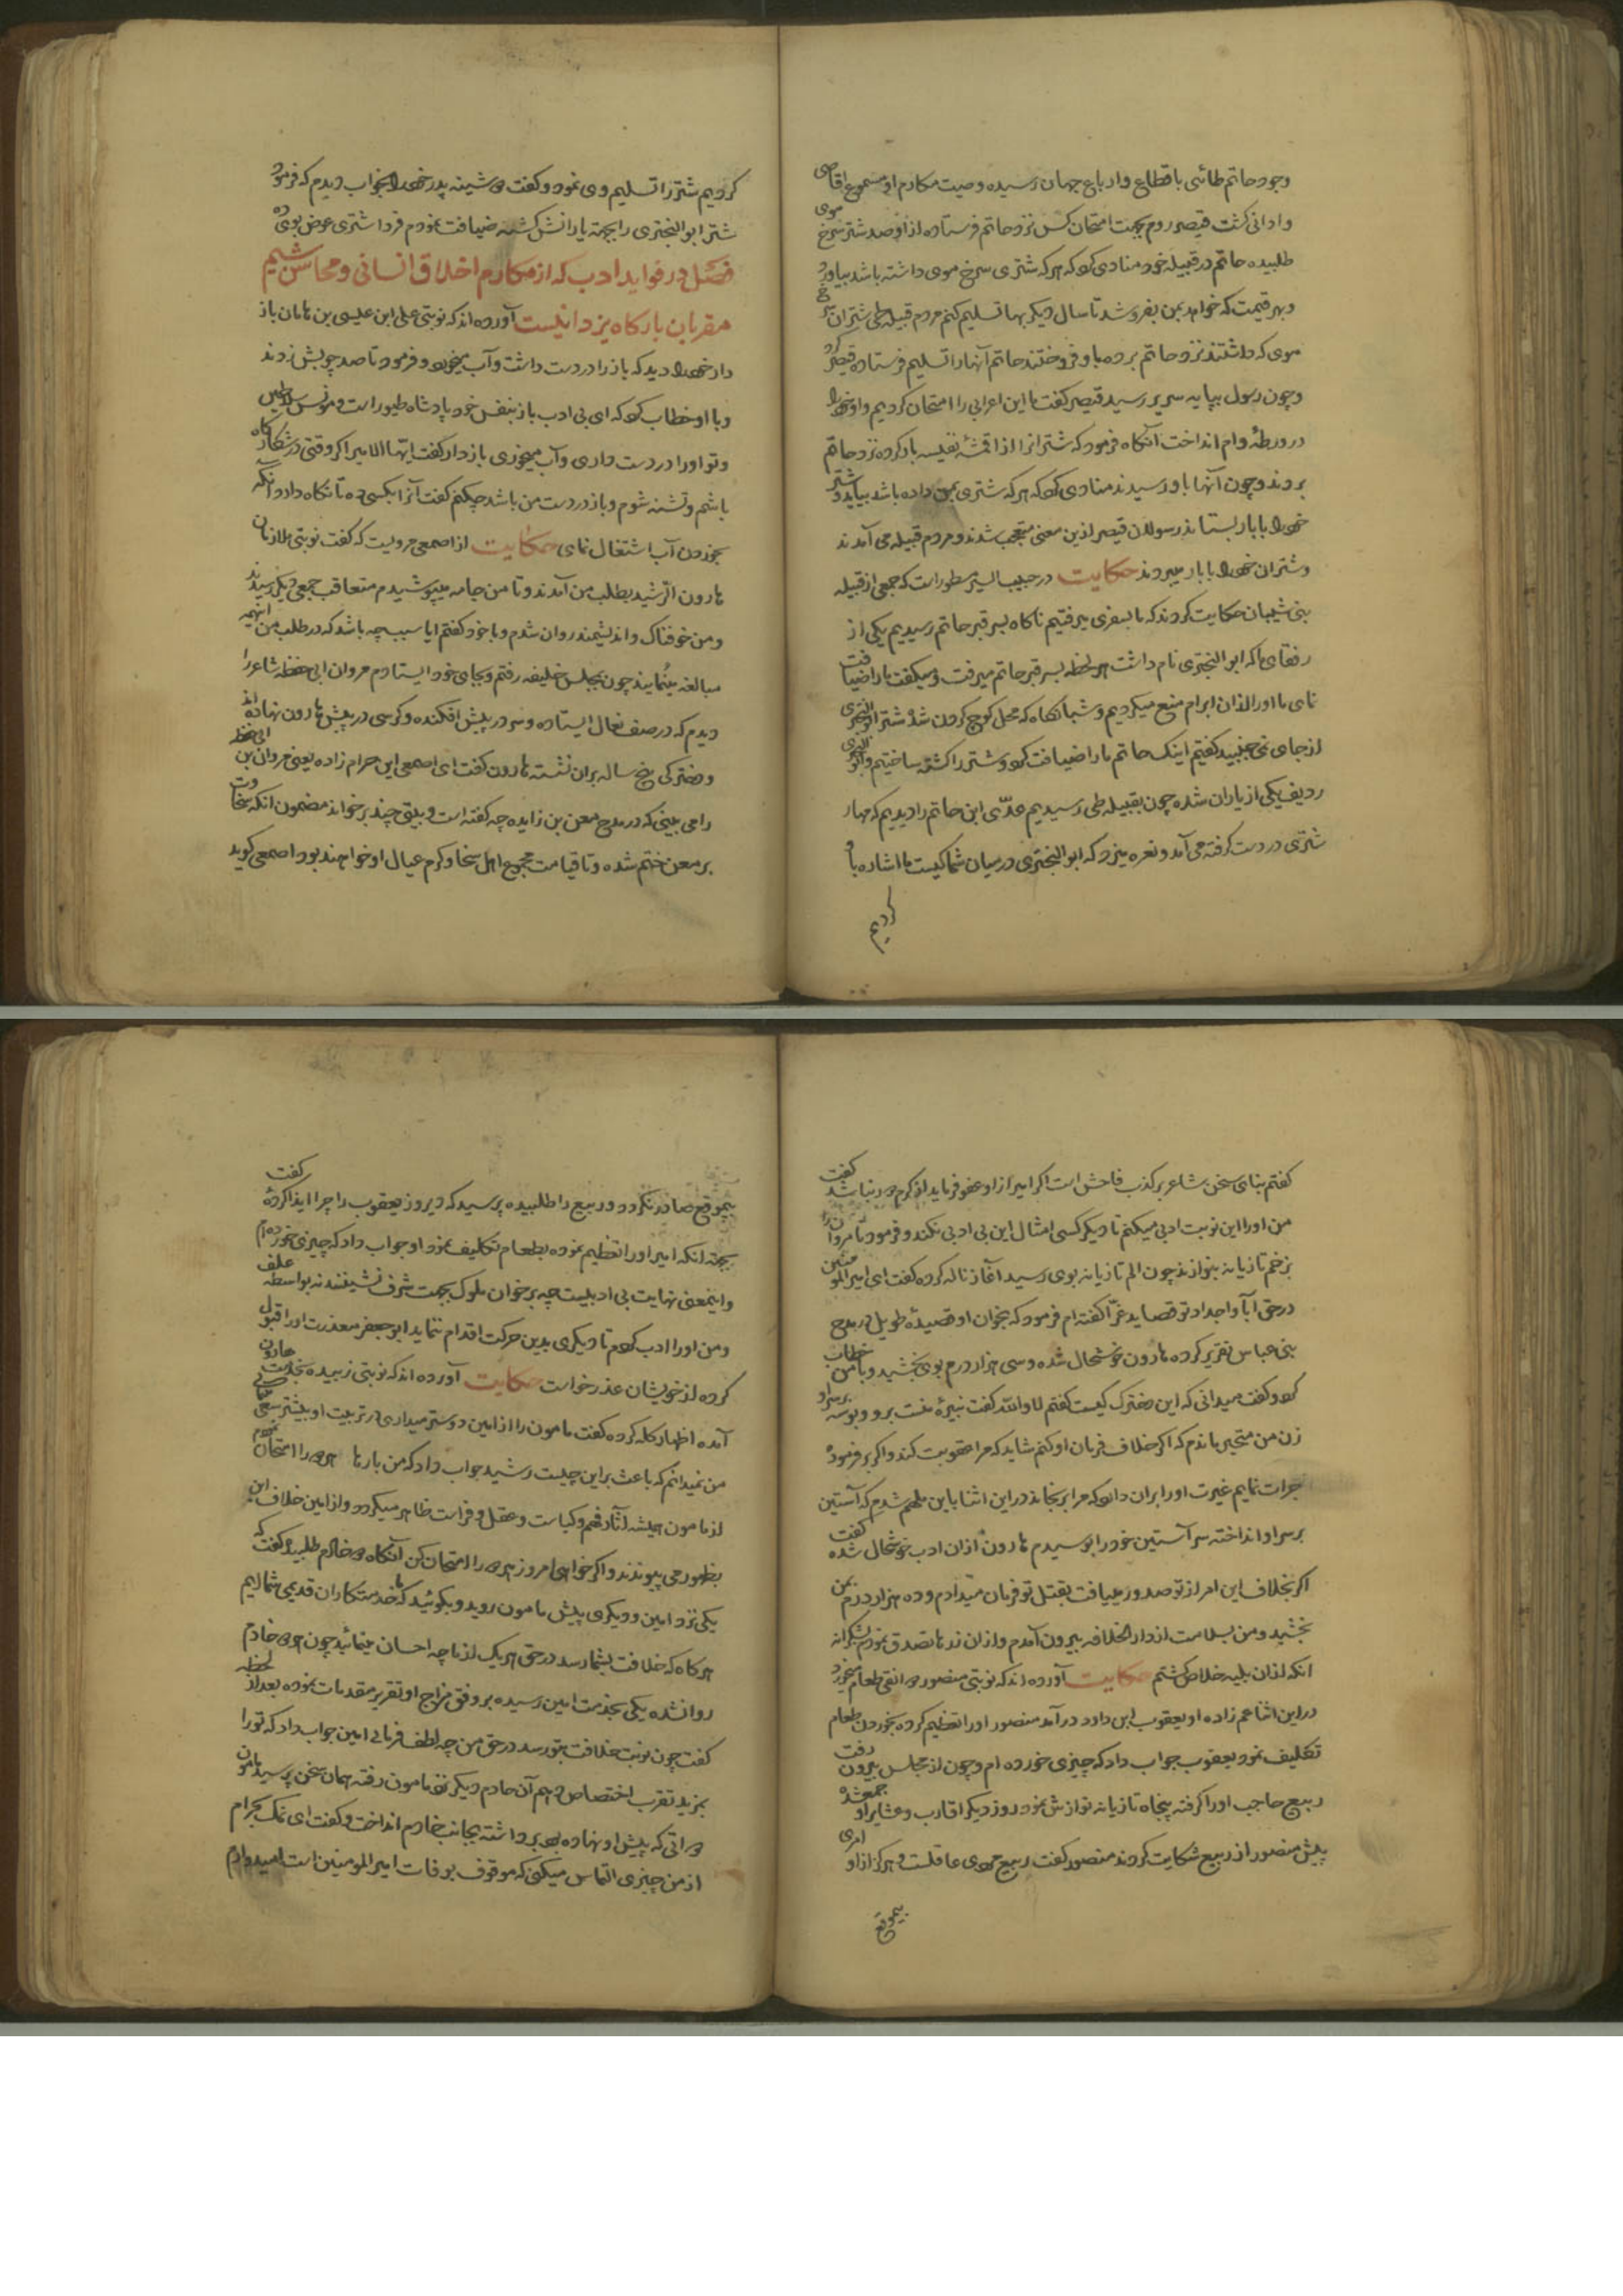 وجود حاتم طائی باقطاع وارباع جهان رسیده وصیت مکارم او مسموع اقاصی
وادانی کشت قیصر روم بجهت امتحان کس نزد حاتم فرستاده از او صد شتر سرخ موی
طلبیده حاتم در قبیله خود منادی کرد که هر که شتری سرخ موی داشته باشد بیاورد
وبهر قیمت که خواهد بمن بفروشد تا سال دیکر بها تسلیم کنم مردم قبیله طی شتران سرخ
موی که داشتند نزد حاتم برده باو فروختند حاتم آنها را تسلیم فرستاده قیصر کرد
وچون رسول بپایه سریر رسید قیصر کفت ما این اعرابی را امتحان کردیم واو خود را
در ورطهٔ وام انداخت آنکاه فرمود که شترانرا از اقمشهٔ نفیسه بار کرده نزد حاتم
بروند وچون آنها باو رسیدند منادی کرد که هر که شتری بمن داده باشد بیاید و شتر
خود را با بار بستاند رسولان قیصر ازین معنی متعجب شدند ومردم قبیله می آمدند
وشتران خود را با بار میبردند حکایت در حبیب السیر مسطور است که جمعی از قبیله
بنی شیبان حکایت کردند که ما بسفری میرفتیم ناکاه بسر قبر حاتم رسیدیم یکی از
رفقای ما که ابو البختری نام داشت هر لحظه بسر قبر حاتم میرفت ومیکفت ما را ضیافت
نمای ما اورا از ان ابرام منع میکردیم وشبانکاه که محل کوچ کردن شد شتر ابو البختری
از جای نمی جنبید کفتیم اینک حاتم ما را ضیافت کرد وشتر را کشته ساختیم وابو البختری
ردیف یکی از یاران شده چون بقبیله طی رسیدیم عدّی ابن حاتم را دیدیم که مهار
شتری در دست کرفته می آمد ونعره میزد که ابو البختری در میان شما کیست ما اشاره باو
کردیم
کردیم شتر را تسلیم وی نمود وکفت دوشینه پدر خود را بخواب دیدم که فرمود
شتر ابو البختری را بجهة یارانش کشته ضیافت نمودم فردا شتری عوض بوی ده
فصل در فواید ادب که از مکارم اخلاق انسانی ومحاسن شیم
مقربان بارکاه یزدانیست آورده اند که نوبتی علی ابن عیسی بن ماهان باز
دار خود را دید که باز را در دست داشت وآب میخورد وفرمود تا صد چوبش زدند
وبا او خطاب کرد که ای بی ادب باز بنفس خود پادشاه طیور است ومونس سلاطین
وتو اورا در دست داری وآب میخوری بازدار کفت ایّها الامیر اکر وقتی در شکارکاه
باشم وتشنه شوم وباز در دست من باشد چکنم کفت آنرا بکسی ده تا نکاه دارد وآنکه
بخوردن آب اشتغال نمای حکایت از اصمعی مرویست که کفت نوبتی ملازمان
هارون الرّشید بطلب من آمدند وتا من جامه میپوشیدم متعاقب جمعی دیکر رسیدند
ومن خوفناک واندیشمند روان شدم وبا خود کفتم ایا سبب چه باشد که در طلب من اینهمه
مبالغه مینمایند چون بمجلس خلیفه رفتم وبجای خود ایستادم مروان ابی حفظه شاعر را
دیدم که در صف نعال ایستاده وسر در پیش افکنده وکرسی در پیش هارون نهاده اند
ودخترکی پنج ساله بران نشسته هارون کفت ای اصمعی این حرام زاده یعنی مروان بن ابی حفظه
را می بینی که در مدح معن بن زایده چه کفته است وبیتی چند بر خواند مضمون انکه سخاوت
بر معن ختم شده وتا قیامت مجموع اهل سخا وکرم عیال او خواهند بود اصمعی کوید
کفتم بنای سخن شاعر بر کذب فاحش است اکر امیر از او عفو فرماید از کرم دور نباشد کفت
من اورا این نوبت ادبی میکنم تا دیکر کسی امثال این بی ادبی نکند وفرمود تا مروانرا
بزخم تازیانه بنوازند چون الم تازیانه بوی رسید آغاز ناله کرده کفت ای امیر المومنین
در حق آبا واجداد تو قصاید غرّا کفته ام فرمود که بخوان او قصیدهٔ طویل در مدح
بنی عباس تقریر کرده هارون خوشحال شده وسی هزار درم بوی بخشید وبا من خطاب
کرد وکفت میدانی که این دخترک کیست کفتم لا والله کفت نبیرهٔ منست برو وبوسه بر سر او
زن من متحیر ماندم که اکر خلاف فرمان او کنم شاید که مرا عقوبت کند واکر بر فرمودهٔ
جرات نمایم غیرت اورا بران دارد که مرا برنجاند در این اثنا باین ملهم شدم که آستین
بر سر او انداخته سر آستین خود را بوسیدم هارون از ان ادب خوشحال شده کفت
اکر بخلاف این امر از تو صدور مییافت بقتل تو فرمان میدادم وده هزار درم بمن
بخشید ومن بسلامت از دار الخلافه بیرون آمدم واز ان زرها تصدق نمودم بشکرانه
انکه از ان بلیه خلاص کشتم حکایت آورده اند که نوبتی منصور دوانقی طعام میخورد
در این اثنا عم زاده او یعقوب ابن داود در آمد منصور اورا تعظیم کرده بخوردن طعام
تکلیف نمود یعقوب جواب داد که چیزی خورده ام وچون از مجلس بیرون رفت
ربیع حاجب اورا کرفته پنجاه تازیانه نوازش نمود روز دیکر اقارب وعشایر او جمعشده
پیش منصور از ربیع شکایت کردند منصور کفت ربیع مردی عاقلست وهرکز از او امری
بیموقع
بیموقع صادر نکردد وربیع را طلبیده پرسید که دیروز یعقوب را چرا ایذا کردهٔ کفت
بجهة انکه امیر اورا تعظیم نموده بطعام تکلیف نمود او جواب داد که چیزی خورده ام
واینمعنی نهایت بی ادبیست چه بر خوان ملوک بجهت شرف نشینند نه بواسطه علف
ومن اورا ادب کردم تا دیکری بدین حرکت اقدام ننماید ابو جعفر معذرت اورا قبول
کرده از خویشان عذر خواست حکایت آورده اند که نوبتی زبیده بخدمت هارون
آمده اظهار کله کرده کفت مامون را از امین دوستر میداری در تربیت او بیشتر سعی
من نمیدانم که باعث بر این چیست رشید جواب داد که من بارها هر دو را امتحان نمودم
از مامون همیشه آثار فهم وکیاست وعقل وفراست ظاهر میکردد واز امین خلاف این
بظهور می پیوندند واکر خواهی امروز هر دو را امتحان کن آنکاه دو خادم طلبیده کفت که
یکی نزد امین ودیکری پیش مامون روید وبکوئید که ما خدمتکاران قدیمی شما ایم
هرکاه که خلافت بشما رسد در حق هر یک از ما چه احسان مینمائید چون هر دو خادم
روانشده یکی بخدمت امین رسیده بر وفق مزاج او تقریر مقدمات نموده بعد از لحظه
کفت چون نوبت خلافت بتو رسد در حق من چه لطف فرمائی امین جواب داد که تو را
بمزید تقرب اختصاص دهم آن خادم دیکر نزد مامون رفته همان سخن پرسید مامون
دواتی که پیش او نهاده بود برداشته بجانب خادم انداخت وکفت ای نمک بحرام
از من چیزی التماس میکنی که موقوف بوفات امیر المومنین است امیدوارم